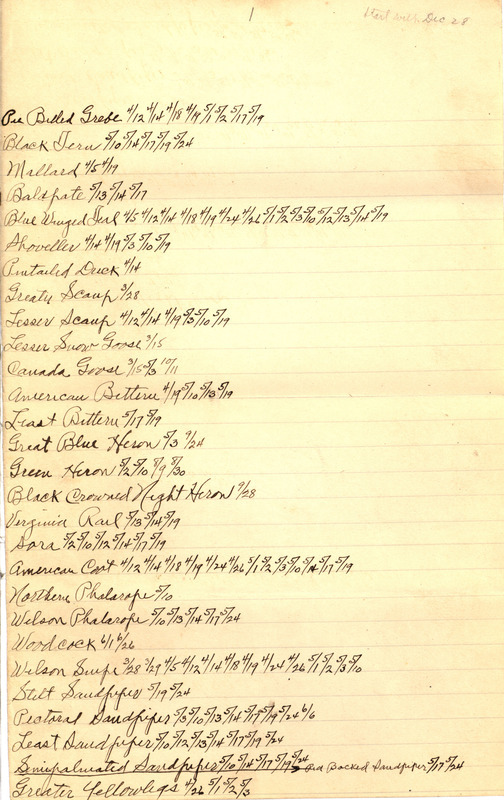 1
Start with Dec 28
Pie Billed Grebe 4/12 4/14 4/18 4/19 5/1 5/2 5/17 5/19
Black Tern 5/10 5/14 5/17 5/19 5/24
Mallard 4/5 4/19
Baldpate 5/13 5/14 5/17
Blue Winged Teal 4/5 4/12 4/14 4/18 4/19 4/24 4/26 5/1 5/2 5/3 5/10 5/12 5/13 5/14 5/19
Shoveller 4/14 4/19 5/3 5/10 5/19
Pintailed Duck 4/14
Greater Scaup 3/28
Lesser Scaup 4/12 4/14 4/19 5/3 5/10 5/19
Lesser Snow Goose 3/15
Canada Goose 3/15 5/3 10/11
American Bittern 4/19 5/10 5/13 5/19
Least Bittern 5/17 5/19
Great Blue Heron 5/3 9/24
Green Heron 5/2 5/10 5/30
Black Crowned Night Heron 9/28
Virginia Rail 5/13 5/14 5/19
Sora 5/2 5/10 5/12 5/14 5/17 5/19
American Coot 4/12 4/14 4/18 4/19 4/24 4/26 5/1 5/2 5/3 5/10 5/14 5/17 5/19
Northern Phalarope 5/10
Wilson Phalarope 5/10 5/13 5/14 5/17 5/24
Woodcock 6/1 6/26
Wilson Snipe 3/28 3/29 4/5 4/12 4/14 4/18 4/19 4/24 4/26 5/1 5/2 5/3 5/10
Stilt Sandpiper 5/19 5/24
Pectoral Sandpiper 5/3 5/10 5/13 5/14 5/17 5/19 5/24 6/6
Least Sandpiper 5/10 5/12 5/13 5/14 5/17 5/19 5/24
Semipalmated Sandpiper 5/10 5/14 5/17 5/19 5/24 Red Backed Sandpiper 5/17 5/24
Greater Yellowlegs 4/26 5/1 5/2 5/3